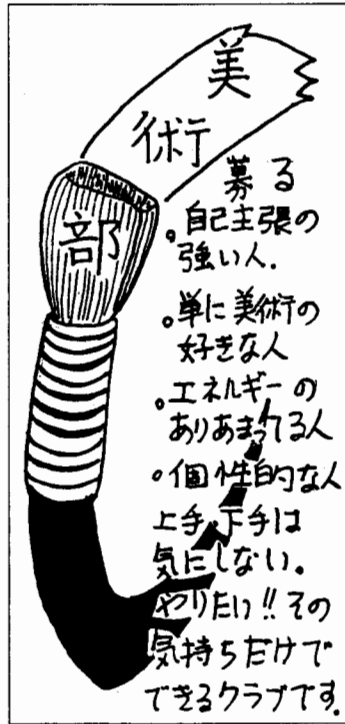 美術部
募る
。自己主張の
強い人.
。単に美術の
好きな人
。エネルギーの
ありあまってる人
。個性的な人
上手、下手は
気にしない。
やりたい!!その
気持ちだけで
できるクラブです。